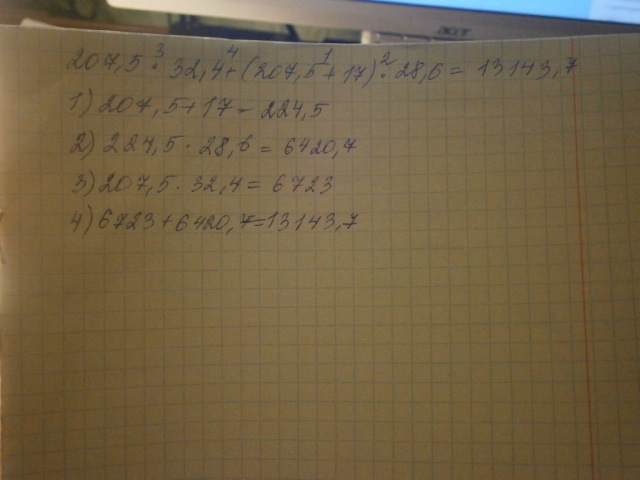 acer
207,5 ·³ 32,4 +⁴ (207,5 +¹ 17) ·² 28,6 = 13143,7
1) 207,5+17 = 224,5
2) 224,5 · 28,6 = 6420,7
3) 207,5 · 32,4 = 6723
4) 6723+6420,7=13143,7